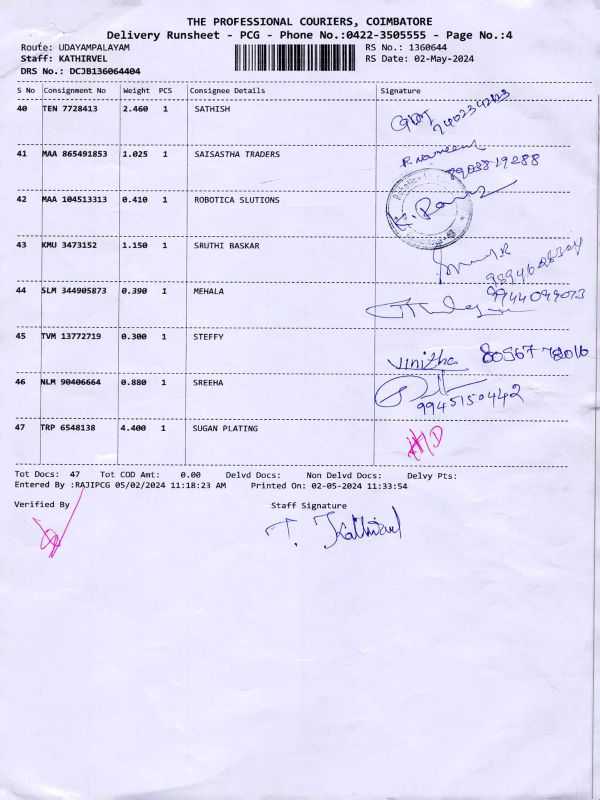 THE PROFESSIONAL COURIERS, COIMBATORE
Delivery Runsheet - PCG - Phone No.:0422-3505555 - Page No.:4
Route: UDAYAMPALAYAM RS No.: 1360644
Staff: KATHIRVEL RS Date: 02-May-2024
DRS No.: DCJB136064404
S No Consignment No Weight PCS Consignee Details Signature
40 TEN 7728413 2.460 1 SATHISH
41 MAA 865491853 1.025 1 SAISASTHA TRADERS
42 MAA 104513313 0.410 1 ROBOTICA SLUTIONS
43 KMU 3473152 1.150 1 SRUTHI BASKAR
44 SLM 344905873 0.390 1 MEHALA
9944099073
45 TVM 13772719 0.300 1 STEFFY
Vinitha 80567 78016
46 NLM 90406664 0.880 1 SREEHA
9945150442
47 TRP 6548138 4.400 1 SUGAN PLATING
H/D
Tot Docs: 47 Tot COD Amt: 0.00 Delvd Docs: Non Delvd Docs: Delvy Pts:
Entered By :RAJIPCG 05/02/2024 11:18:23 AM Printed On: 02-05-2024 11:33:54
Verified By Staff Signature
T. Kathirvel